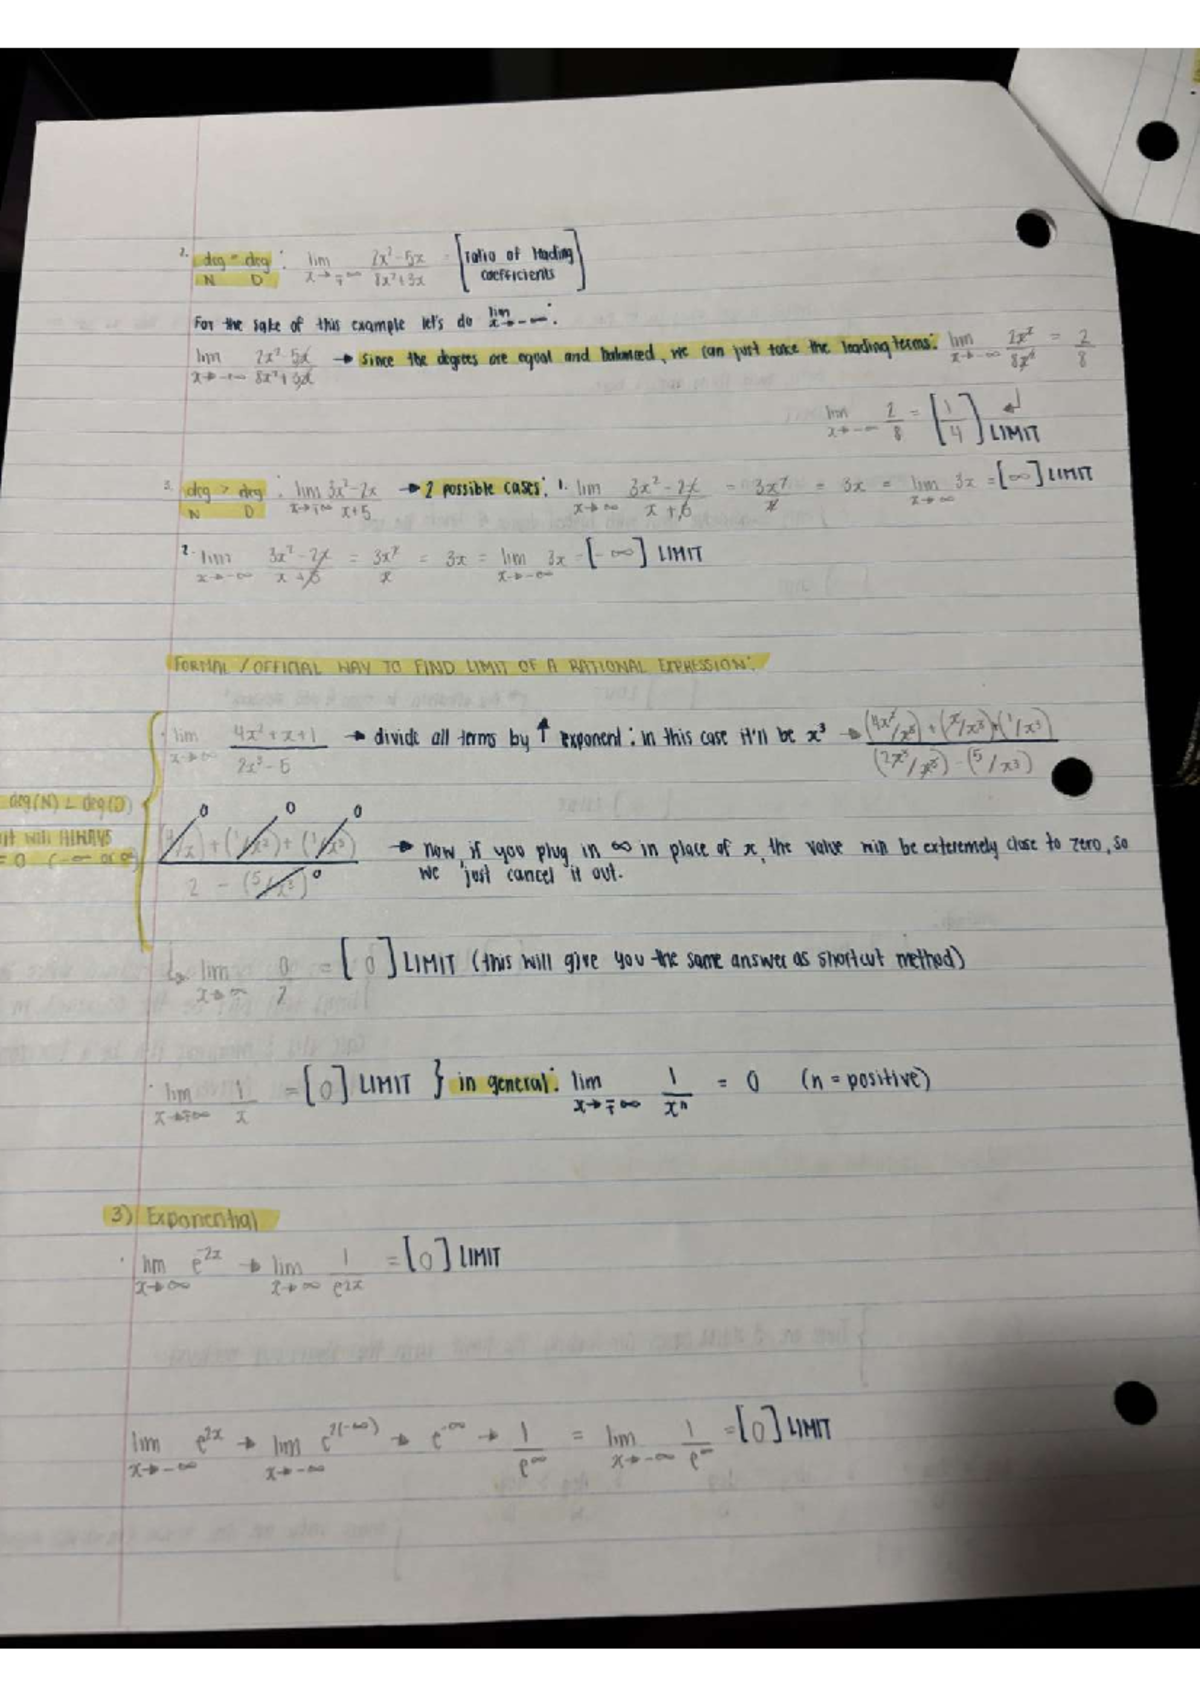 2. deg = deg : lim 2x²-5x [ratio of leading
N D x→∓∞ 8x²+3x coefficients]
For the sake of this example let's do lim x→-∞ :
lim 2x²-5x → since the degrees are equal and balanced, we can just take the leading terms: lim 2x² = 2
x→-∞ 8x²+3x x→-∞ 8x² 8
lim 2 = [1/4] LIMIT
x→-∞ 8
3. deg > deg : lim 3x²-2x → 2 possible cases: 1. lim 3x²-2x = 3x² = 3x = lim 3x = [∞] LIMIT
N D x→∓∞ x+5 x→∞ x+5 x x→∞
2. lim 3x²-2x = 3x² = 3x = lim 3x = [-∞] LIMIT
x→-∞ x+5 x x→-∞
FORMAL/OFFICIAL WAY TO FIND LIMIT OF A RATIONAL EXPRESSION:
· lim 4x²+x+1 → divide all terms by ↑ exponent: in this case it'll be x³ → (4x²/x³)+(x/x³)+(1/x³)
x→∞ 2x³-5 (2x³/x³)-(5/x³)
deg(N) < deg(D)
it will ALWAYS
= 0 (-∞ or ∞)
0 0 0
(4/x)+(1/x²)+(1/x³) → now, if you plug in ∞ in place of x, the value will be exteremely close to zero, so
2 - (5/x³) 0 we just cancel it out.
↳ lim 0 = [0] LIMIT (this will give you the same answer as shortcut method)
x→∞ 2
· lim 1 = [0] LIMIT } in general: lim 1 = 0 (n = positive)
x→∓∞ x x→∓∞ xⁿ
3) Exponential
· lim e^-2x → lim 1 = [0] LIMIT
x→∞ x→∞ e2x
lim e^2x → lim e^2(-∞) → e^-∞ → 1 = lim 1 = [0] LIMIT
x→-∞ x→-∞ e^∞ x→-∞ e^∞